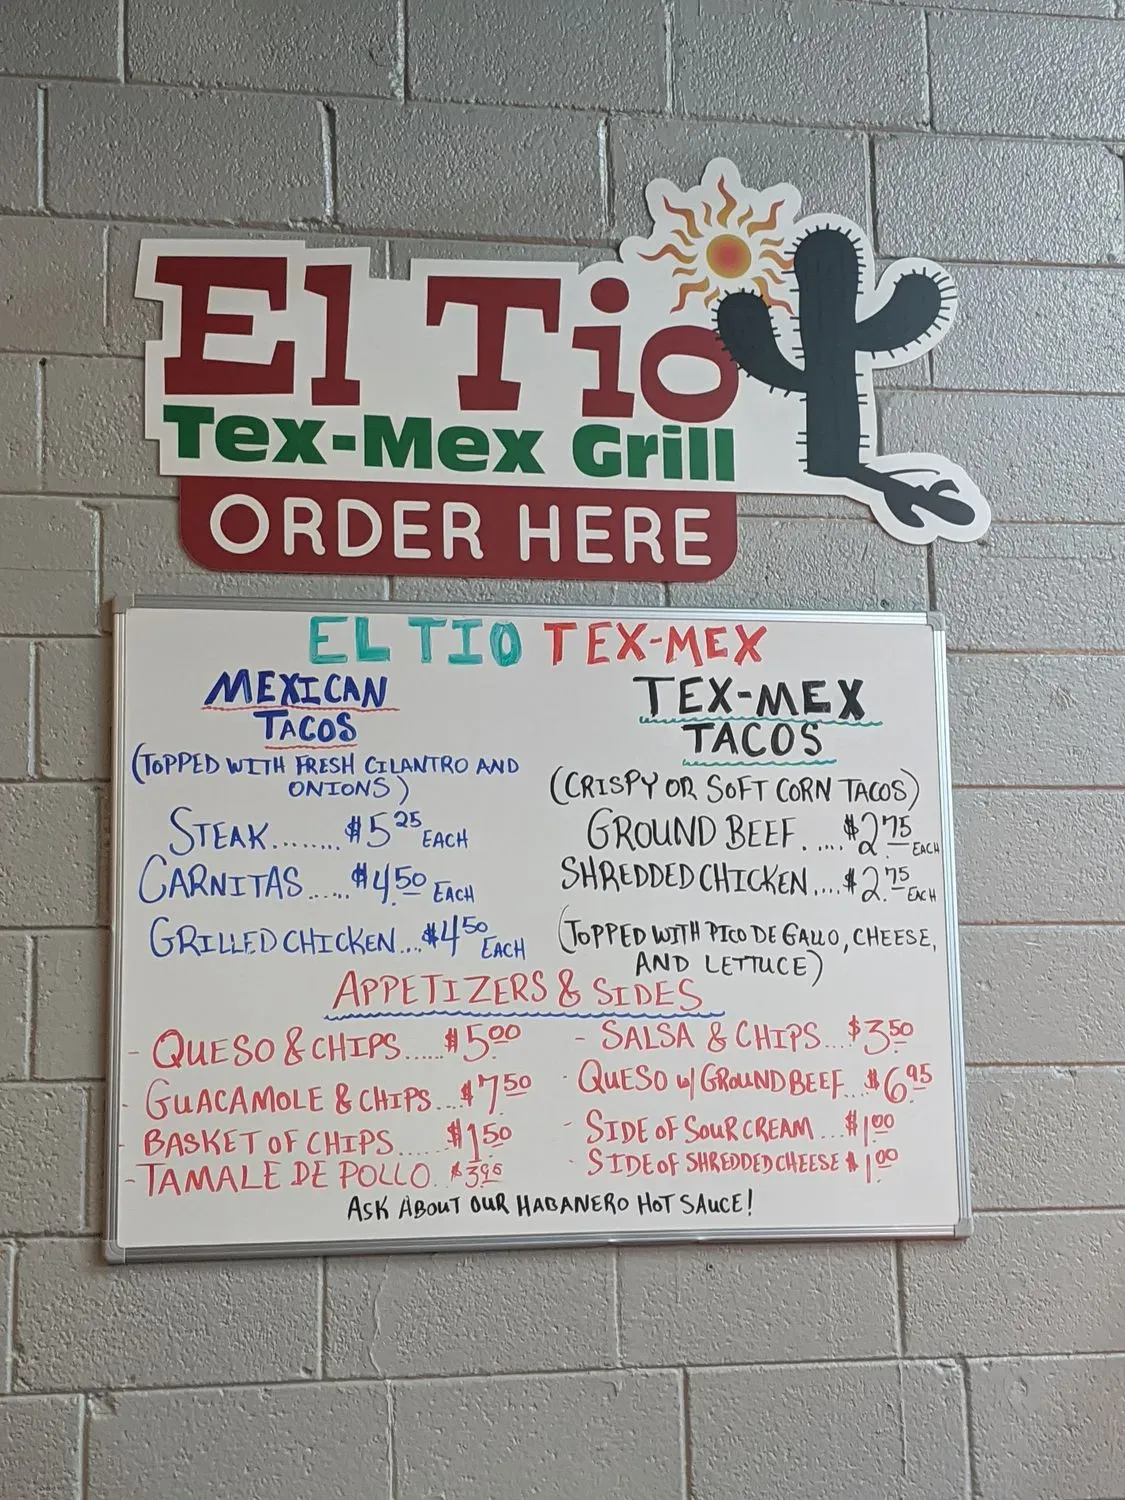 El Tio
Tex-Mex Grill
ORDER HERE
EL TIO TEX-MEX
MEXICAN
TACOS
(TOPPED WITH FRESH CILANTRO AND
ONIONS)
STEAK........ $5.25 EACH
CARNITAS..... $4.50 EACH
GRILLED CHICKEN... $4.50 EACH
TEX-MEX
TACOS
(CRISPY OR SOFT CORN TACOS)
GROUND BEEF..... $2.75 EACH
SHREDDED CHICKEN.... $2.75 EACH
(TOPPED WITH PICO DE GALLO, CHEESE,
AND LETTUCE)
APPETIZERS & SIDES
- QUESO & CHIPS...... $5.00
- GUACAMOLE & CHIPS... $7.50
- BASKET OF CHIPS..... $1.50
- TAMALE DE POLLO. $3.95
- SALSA & CHIPS... $3.50
- QUESO w/ GROUND BEEF.. $6.95
- SIDE OF SOUR CREAM... $1.00
- SIDE OF SHREDDED CHEESE $1.00
ASK ABOUT OUR HABANERO HOT SAUCE!